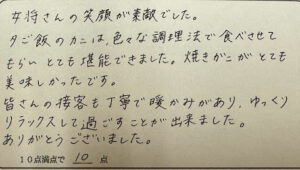 女将さんの笑顔が素敵でした。
夕ご飯のカニは、色々な調理法で食べさせて
もらい とても堪能できました。焼きがにがとても
美味しかったです。
皆さんの接客も丁寧で暖かみがあり、ゆっくり
リラックスして過ごすことが出来ました。
ありがとうございました。
10点満点で 10 点